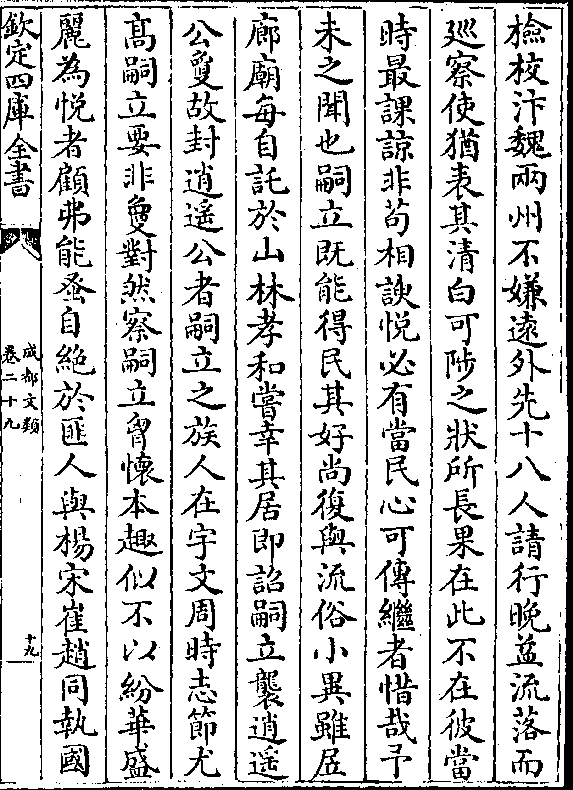 檢校汴魏兩州不嫌逺外先十八人請行晚益流落而
廵察使猶表其清白可陟之狀所長果在此不在彼當
時最課諒非苟相諛悦必有當民心可傳繼者惜哉予
未之聞也嗣立既能得民其好尚復與流俗小異雖居
廊廟每自託於山林孝和嘗幸其居即詔嗣立襲逍遥
公敻故封逍遥公者嗣立之族人在宇文周時志節尤
髙嗣立要非敻對然察嗣立胷懷本趣似不以紛華盛
麗為悦者顧弗能蚤自絶於匪人與楊宋崔趙同執國
欽定四庫全書
成都文類
卷二十九
十九